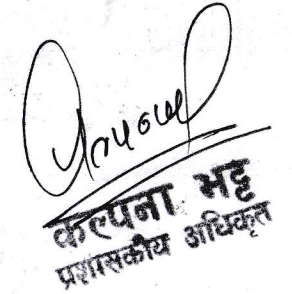 कल्पना भट्ट
प्रशासकीय अधिकृत